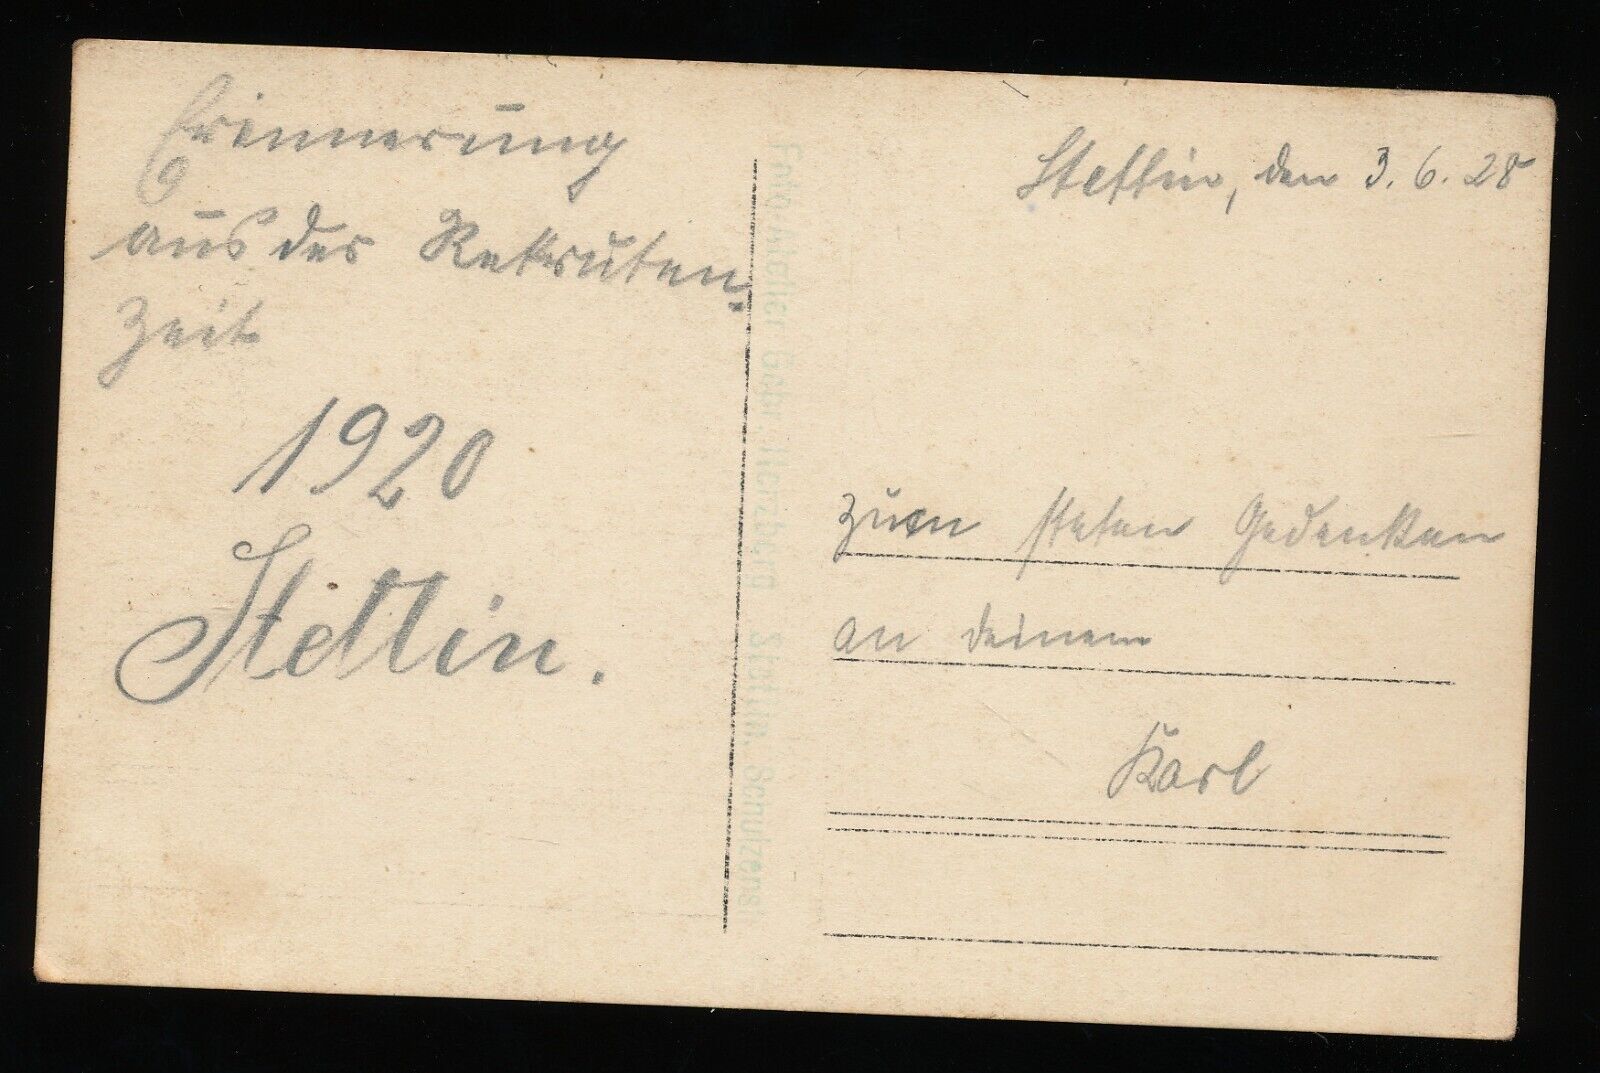 Erinnerung
aus der Rekruten-
Zeit
1920
Stettin.
Foto-Atelier Gebr. Herzberg, Stettin, Schulzenst
Stettin, den 3. 6. 28
zum steten Gedenken
an deinen
Karl